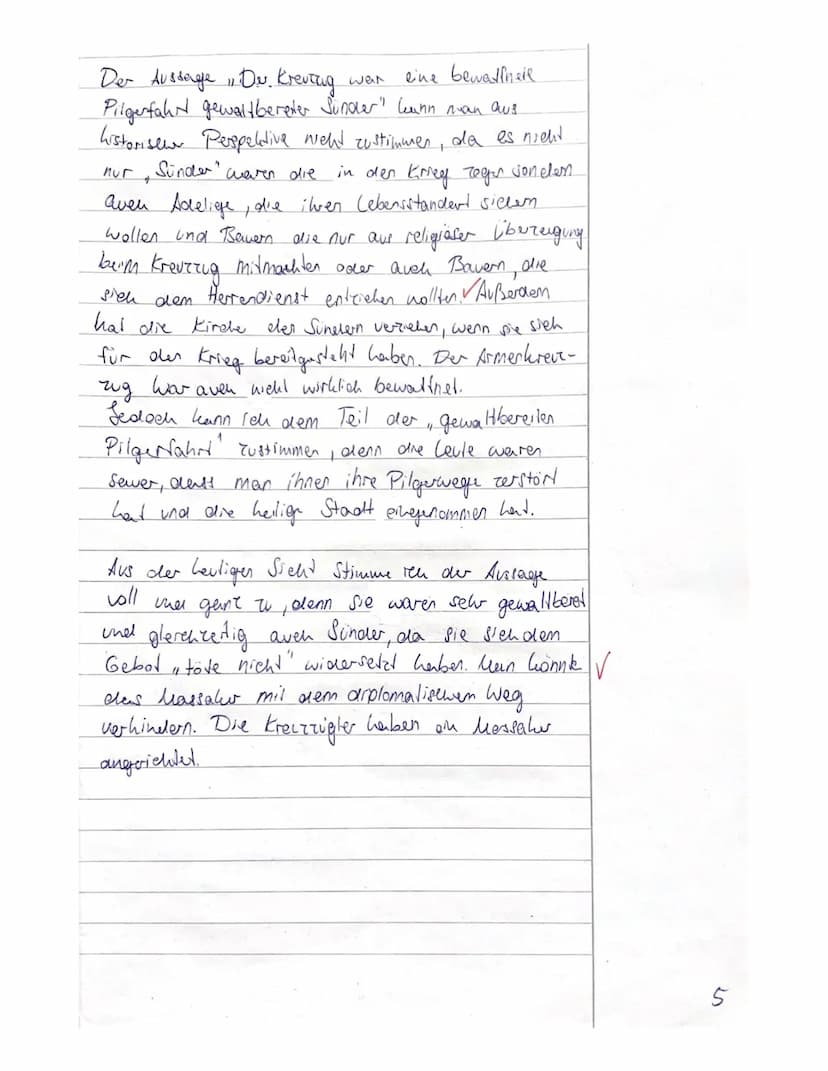 Der Aussage „Der Kreuzug war eine bewaffnete
Pilgerfahrt gewaltbereiter Sünder" kann man aus
historischer Perspektive nicht zustimmen, da es nicht
nur „Sünder" waren die in den Krieg zogen sondern
auch Adelige, die ihren Lebensstandart sichern
wollen und Bauern die nur aus religiöser Überzeugung
beim Kreuzzug mitmachten oder auch Bauern, die
sich dem Herrendienst entziehen wollten. Außerdem
hat die Kirche den Sündern verziehen, wenn sie sich
für den Krieg bereitgestellt haben. Der Armenkreuz-
zug war auch nicht wirklich bewaffnet.
Jedoch kann ich dem Teil der „gewaltbereiten
Pilgerfahrt" zustimmen, denn die Leute waren
sauer, dass man ihnen ihre Pilgerwege zerstört
hat und die heilige Stadt eingenommen hat.
Aus der heutigen Sicht stimme ich der Aussage
voll und ganz zu, denn sie waren sehr gewaltbereit
und gleichzeitig auch Sünder, da sie sich dem
Gebot „töte nicht" widersetzt haben. Man könnte
das Massaker mit dem diplomatischem Weg
verhindern. Die Kreuzzügler haben ein Massaker
angerichtet.
5